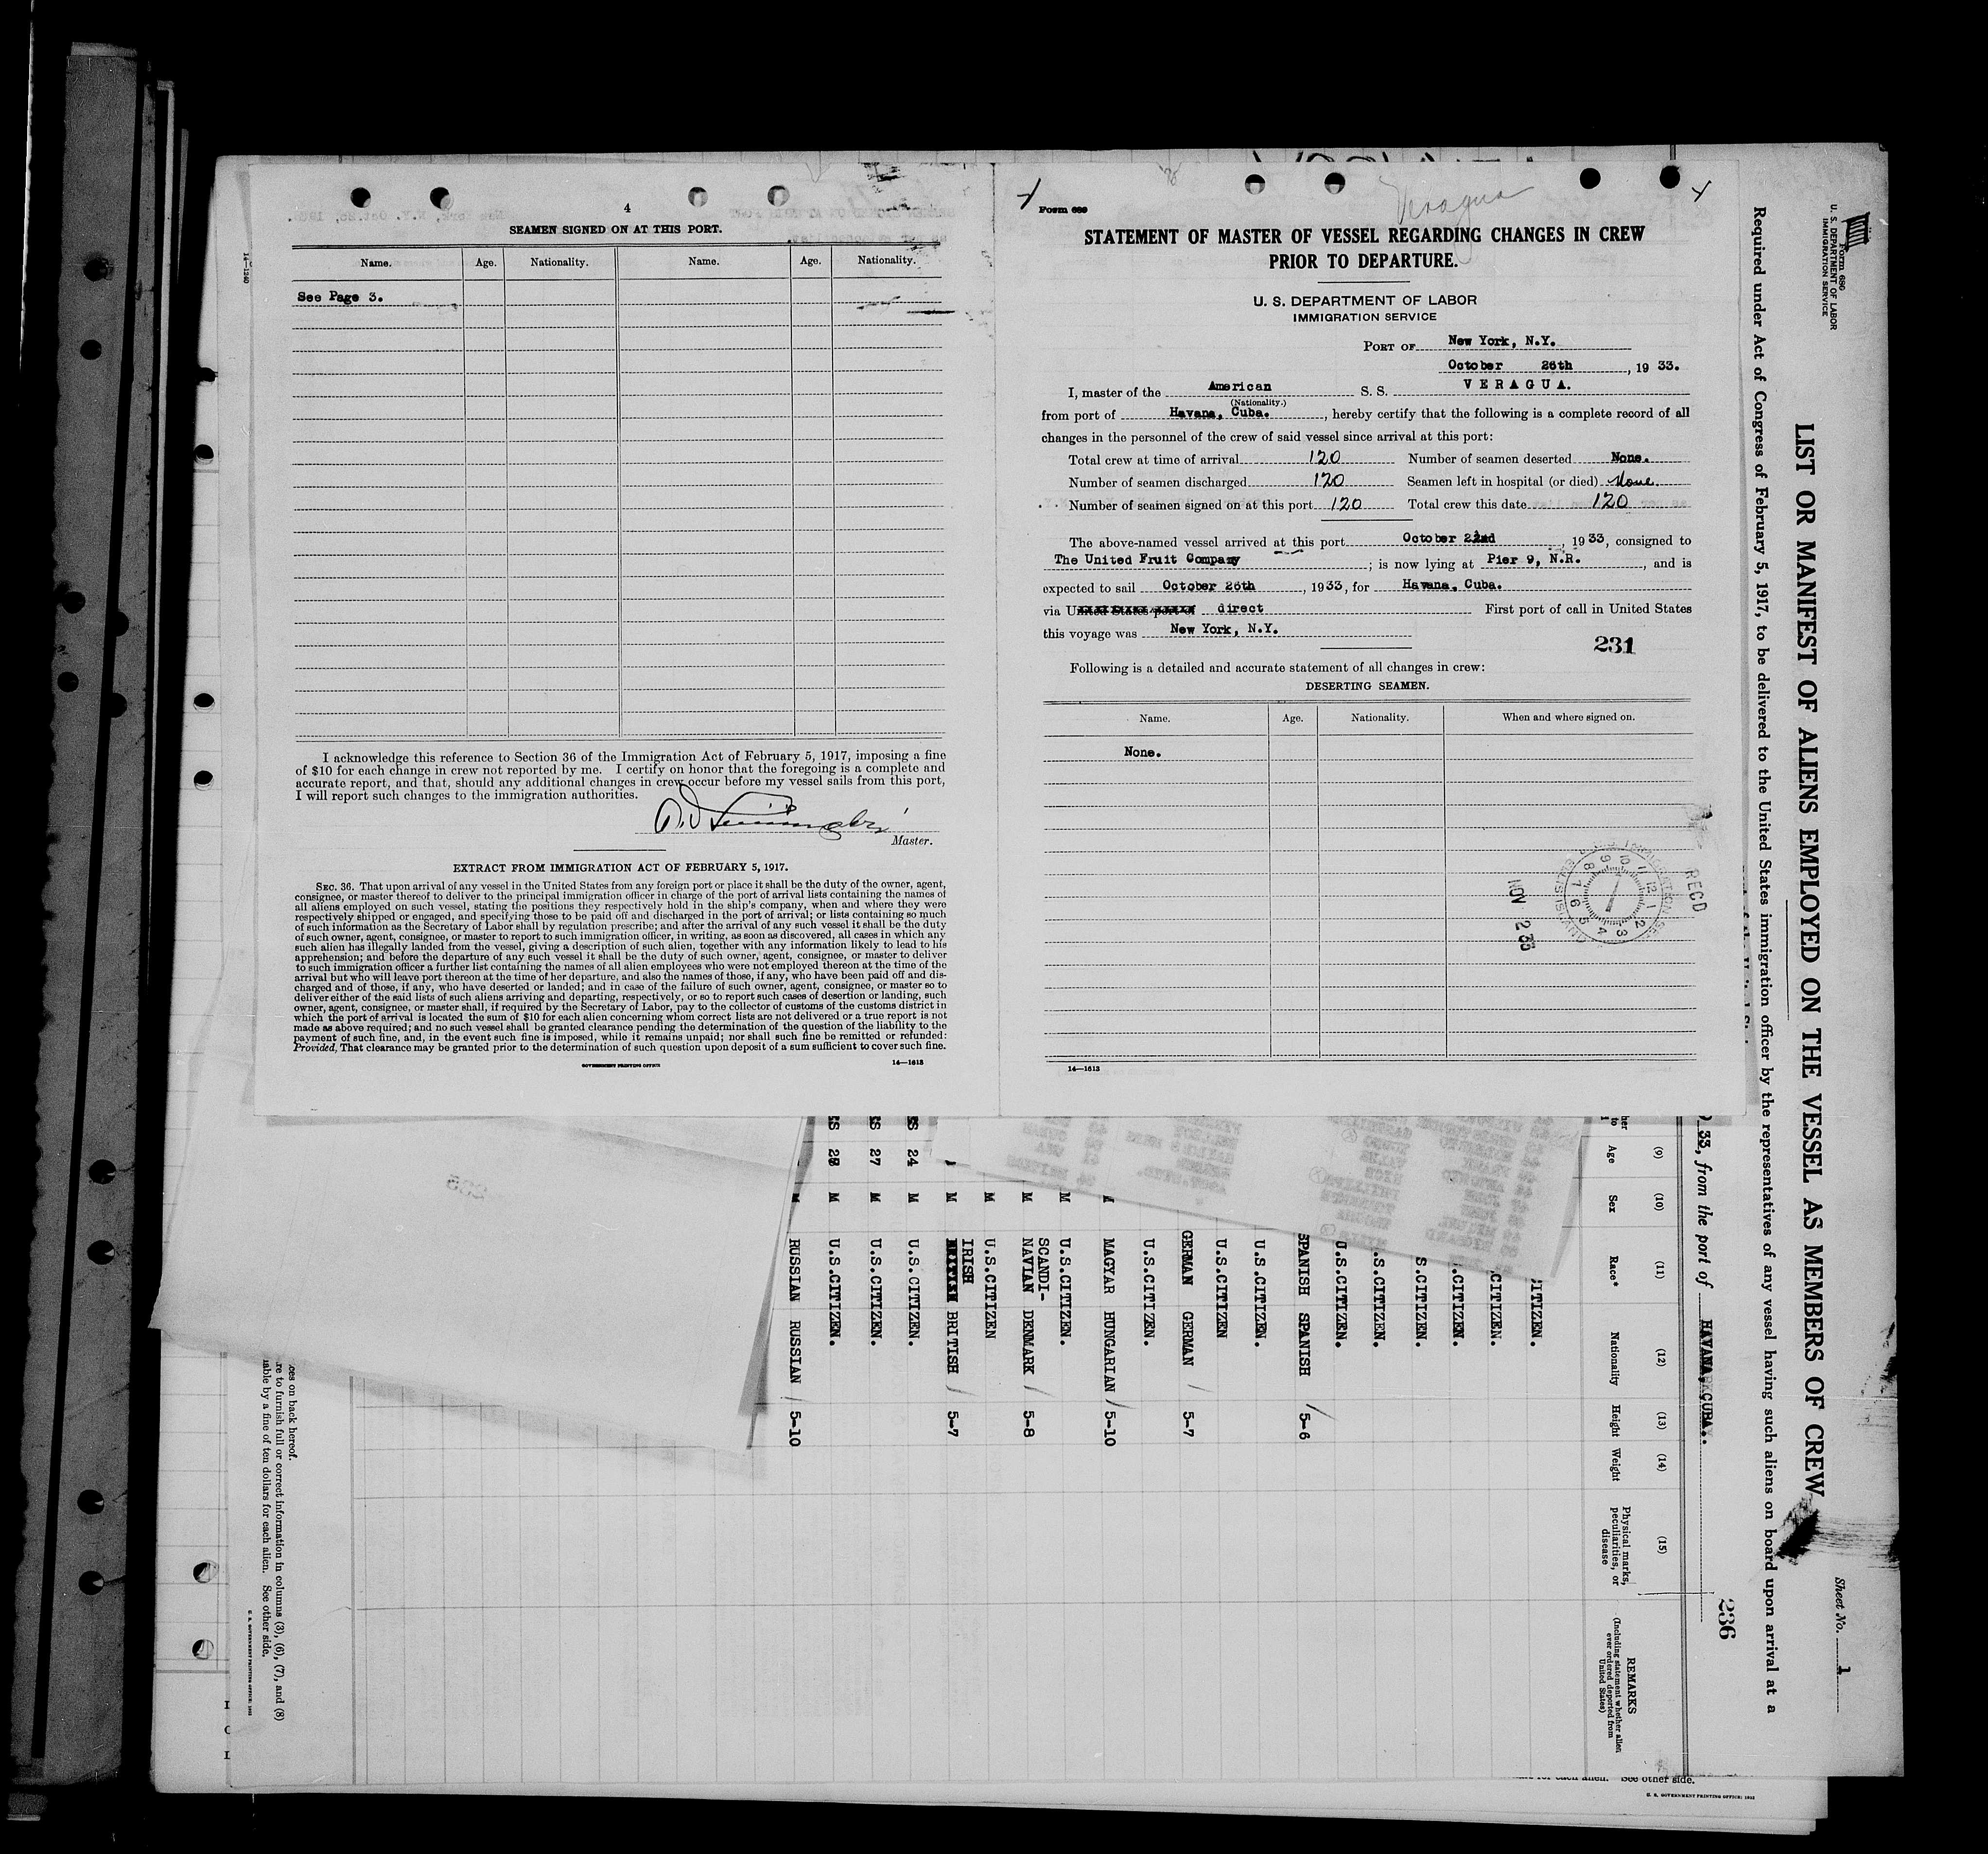 4
SEAMEN SIGNED ON AT THIS PORT.
Name. Age. Nationality. Name. Age. Nationality.
See Page 3.
I acknowledge this reference to Section 36 of the Immigration Act of February 5, 1917, imposing a fine
of $10 for each change in crew not reported by me. I certify on honor that the foregoing is a complete and
accurate report, and that, should any additional changes in crew occur before my vessel sails from this port,
I will report such changes to the immigration authorities.
Master.
EXTRACT FROM IMMIGRATION ACT OF FEBRUARY 5, 1917.
SEC. 36. That upon arrival of any vessel in the United States from any foreign port or place it shall be the duty of the owner, agent,
consignee, or master thereof to deliver to the principal immigration officer in charge of the port of arrival lists containing the names of
all aliens employed on such vessel, stating the positions they respectively hold in the ship's company, when and where they were
respectively shipped or engaged, and specifying those to be paid off and discharged in the port of arrival; or lists containing so much
of such information as the Secretary of Labor shall by regulation prescribe; and after the arrival of any such vessel it shall be the duty
of such owner, agent, consignee, or master to report to such immigration officer, in writing, as soon as discovered, all cases in which any
such alien has illegally landed from the vessel, giving a description of such alien, together with any information likely to lead to his
apprehension; and before the departure of any such vessel it shall be the duty of such owner, agent, consignee, or master to deliver
to such immigration officer a further list containing the names of all alien employees who were not employed thereon at the time of the
arrival but who will leave port thereon at the time of her departure, and also the names of those, if any, who have been paid off and dis-
charged and of those, if any, who have deserted or landed; and in case of the failure of such owner, agent, consignee, or master so to
deliver either of the said lists of such aliens arriving and departing, respectively, or so to report such cases of desertion or landing, such
owner, agent, consignee, or master shall, if required by the Secretary of Labor, pay to the collector of customs of the customs district in
which the port of arrival is located the sum of $10 for each alien concerning whom correct lists are not delivered or a true report is not
made as above required; and no such vessel shall be granted clearance pending the determination of the question of the liability to the
payment of such fine, and, in the event such fine is imposed, while it remains unpaid; nor shall such fine be remitted or refunded:
Provided, That clearance may be granted prior to the determination of such question upon deposit of a sum sufficient to cover such fine.
GOVERNMENT PRINTING OFFICE 14—1613
14—1240
Form 689
Veragua
STATEMENT OF MASTER OF VESSEL REGARDING CHANGES IN CREW
PRIOR TO DEPARTURE.
U. S. DEPARTMENT OF LABOR
IMMIGRATION SERVICE
PORT OF New York, N.Y.
October 26th, 1933.
I, master of the American S. S. VERAGUA.
(Nationality.)
from port of Havana, Cuba., hereby certify that the following is a complete record of all
changes in the personnel of the crew of said vessel since arrival at this port:
Total crew at time of arrival 120 Number of seamen deserted None.
Number of seamen discharged 120 Seamen left in hospital (or died) None
Number of seamen signed on at this port 120 Total crew this date 120
The above-named vessel arrived at this port October 22nd, 1933, consigned to
The United Fruit Company; is now lying at Pier 9, N.R., and is
expected to sail October 26th, 1933, for Havana, Cuba.
via United States port of direct First port of call in United States
this voyage was New York, N.Y.
231
Following is a detailed and accurate statement of all changes in crew:
DESERTING SEAMEN.
Name. Age. Nationality. When and where signed on.
None.
REC'D
NOV 2 33
14—1613
Form 680
U. S. DEPARTMENT OF LABOR
IMMIGRATION SERVICE
LIST OR MANIFEST OF ALIENS EMPLOYED ON THE VESSEL AS MEMBERS OF CREW
Sheet No. 1
Required under Act of Congress of February 5, 1917, to be delivered to the United States immigration officer by the representatives of any vessel having such aliens on board upon arrival at a
33, from the port of HAVANA, CUBA.
236
(9) (10) (11) (12) (13) (14) (15)
Age Sex Race* Nationality Height Weight Physical marks, peculiarities, or disease
REMARKS
(Including statement whether alien ever ordered deported from United States)
ITIZEN.
CITIZEN.
.CITIZEN.
S.CITIZEN.
.S.CITIZEN.
U.S.CITIZEN.
SPANISH SPANISH 5-6
U.S.CITIZEN.
U.S.CITIZEN
GERMAN GERMAN 5-7
U.S.CITIZEN.
MAGYAR HUNGARIAN 5-10
M U.S.CITIZEN.
M SCANDI-
NAVIAN DENMARK 5-8
M U.S.CITIZEN
M IRISH BRITISH 5-7
ES 24 M U.S.CITIZEN.
ES 27 M U.S.CITIZEN.
ES M U.S.CITIZEN.
M RUSSIAN RUSSIAN 5-10
ces on back hereof.
re to furnish full or correct information in columns (3), (6), (7), and (8)
able by a fine of ten dollars for each alien. See other side.
U. S. GOVERNMENT PRINTING OFFICE: 1932
for each alien. See other side.
U. S. GOVERNMENT PRINTING OFFICE: 1932